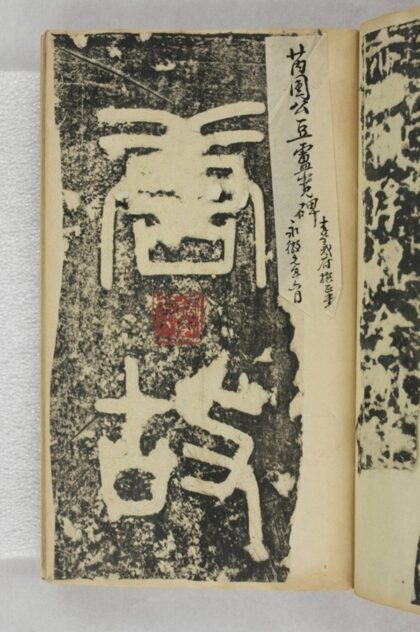 芮国公豆盧寛碑
李義府撰正書
永徽元年六月
唐故